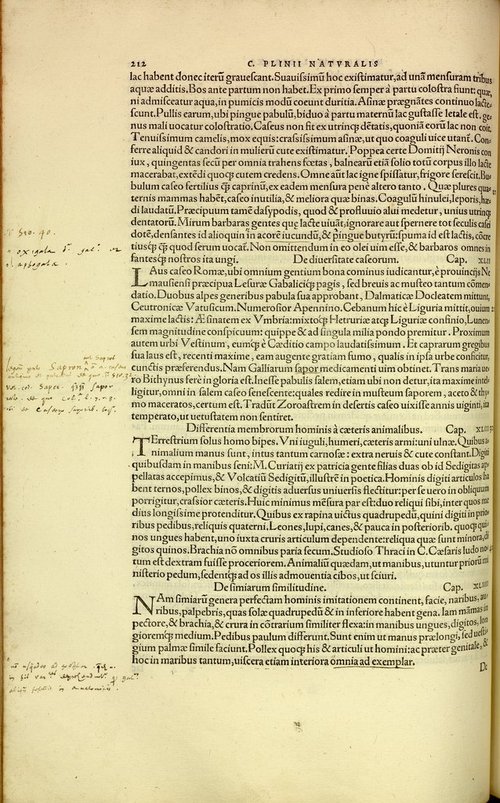 212 C. PLINII NATVRALIS
lac habent donec iterũ grauescant. Suauissimũ hoc existimatur, ad unã mensuram tribus
aquæ additis. Bos ante partum non habet. Ex primo semper à partu colostra fiunt: quæ,
ni admisceatur aqua, in pumicis modũ coeunt duritia. Asinæ prægnãtes continuo lacte-
scunt. Pullis earum, ubi pingue pabulũ, biduo à partu maternũ lac gustasse letale est. ge-
nus mali uocatur colostratio. Caseus non fit ex utrinq; dẽtatis, quoniã eorũ lac non coit.
Tenuissimum camelis, mox equis: crassissimum asinæ, ut quo coaguli uice utant̃. Con-
ferre aliquid & candori in mulierũ cute existimatur. Poppea certe Domitij Neronis con
iux, quingentas secũ per omnia trahens fœtas, balnearũ etiã solio totũ corpus illo lacte
macerabat, extẽdi quoq; cutem credens. Omne aũt lac igne spissatur, frigore serescit. Bo-
bulum caseo fertilius q̃ caprinũ, ex eadem mensura pene altero tanto. Quæ plures qua-
ternis mammas habẽt, caseo inutilia, & meliora quæ binas. Coagulũ hinulei, leporis, hæ-
di laudatũ. Præcipuum tamẽ dasypodis, quod & profluuio alui medetur, unius utrinq;
dentatorũ. Mirum barbaras gentes quę lacte uiuãt, ignorare aut spernere tot seculis casei
dotẽ, densantes id alioquin in acorẽ iucundũ, & pingue butyrũ: spuma id est lactis, cõcre
tiusq; q̃ quod serum uocant̃. Non omittendum in eo olei uim esse, & barbaros omnes in
fantesq; nostros ita ungi. De diuersitate caseorum. Cap.
LAus caseo Romæ, ubi omnium gentium bona cominus iudicantur, è prouincijs Ne
mausiensi præcipua Lesuræ Gabaliciq; pagis, sed breuis ac musteo tantum cõmen-
datio. Duobus alpes generibus pabula sua approbant, Dalmaticæ Docleatem mittunt,
Ceutronicæ Vatusicum. Numerosior Apennino. Cebanum hic è Liguria mittit, ouium
maxime lactis: Æsinatem ex Vmbria: mixtoq; Hetruriæ atq; Liguriæ confinio, Lunen-
sem magnitudine conspicuum: quippe & ad singula milia pondo premitur. Proximum
autem urbi Vestinum, eumq; è Cæditio campo laudatissimum. Et caprarum gregibus
sua laus est, recenti maxime, eam augente gratiam fumo, qualis in ipsa urbe conficitur,
cunctis præferendus. Nam Galliarum sapor medicamenti uim obtinet. Trans maria ue-
ro Bithynus fere in gloria est. Inesse pabulis salem, etiam ubi non detur, ita maxime intel-
ligitur, omni in salem caseo senescente: quales redire in musteum saporem, aceto & thy-
mo maceratos, certum est. Tradũt Zoroastrem in desertis caseo uixisse annis uiginti, ita
temperato, ut uetustatem non sentiret.
Differentia membrorum hominis à cæteris animalibus. Cap.
TErrestrium solus homo bipes. Vni iuguli, humeri, cæteris armi: uni ulnæ. Quibus a-
nimalium manus sunt, intus tantum carnosæ: extra neruis & cute constant. Digiti
quibusdam in manibus seni: M. Curiatij ex patricia gente filias duas ob id Sedigitas ap-
pellatas accepimus, & Volcatiũ Sedigitũ, illustrẽ in poetica. Hominis digiti articulos ha
bent ternos, pollex binos, & digitis aduersus uniuersis flectitur: per se uero in obliquum
porrigitur, crassior cæteris. Huic minimus mẽsura par est: duo reliqui sibi, inter quos me
dius longissime protenditur. Quibus ex rapina uictus quadrupedũ, quini digiti in prio-
ribus pedibus, reliquis quaterni. Leones, lupi, canes, & pauca in posteriorib. quoq; qui-
nos ungues habent, uno iuxta cruris articulum dependente: reliqua quæ sunt minora, di
gitos quinos. Brachia nõ omnibus paria secum. Studioso Thraci in C. Cæsaris ludo no-
tum est dextram fuisse proceriorem. Animaliũ quædam, ut manibus, utuntur priorũ mi
nisterio pedum, sedentq; ad os illis admouentia cibos, ut sciuri.
De simiarum similitudine. Cap.
NAm simiarũ genera perfectam hominis imitationem continent, facie, naribus, au-
ribus, palpebris, quas solæ quadrupedũ & in inferiore habent gena. Iam mãmas in
pectore, & brachia, & crura in cõtrarium similiter flexa: in manibus ungues, digitos, lon
gioremq; medium. Pedibus paulum differunt. Sunt enim ut manus prælongi, sed uesti-
gium palmæ simile faciunt. Pollex quoq; his & articuli ut homini: ac præter genitale, &
hoc in maribus tantum, uiscera etiam interiora omnia ad exemplar.
De